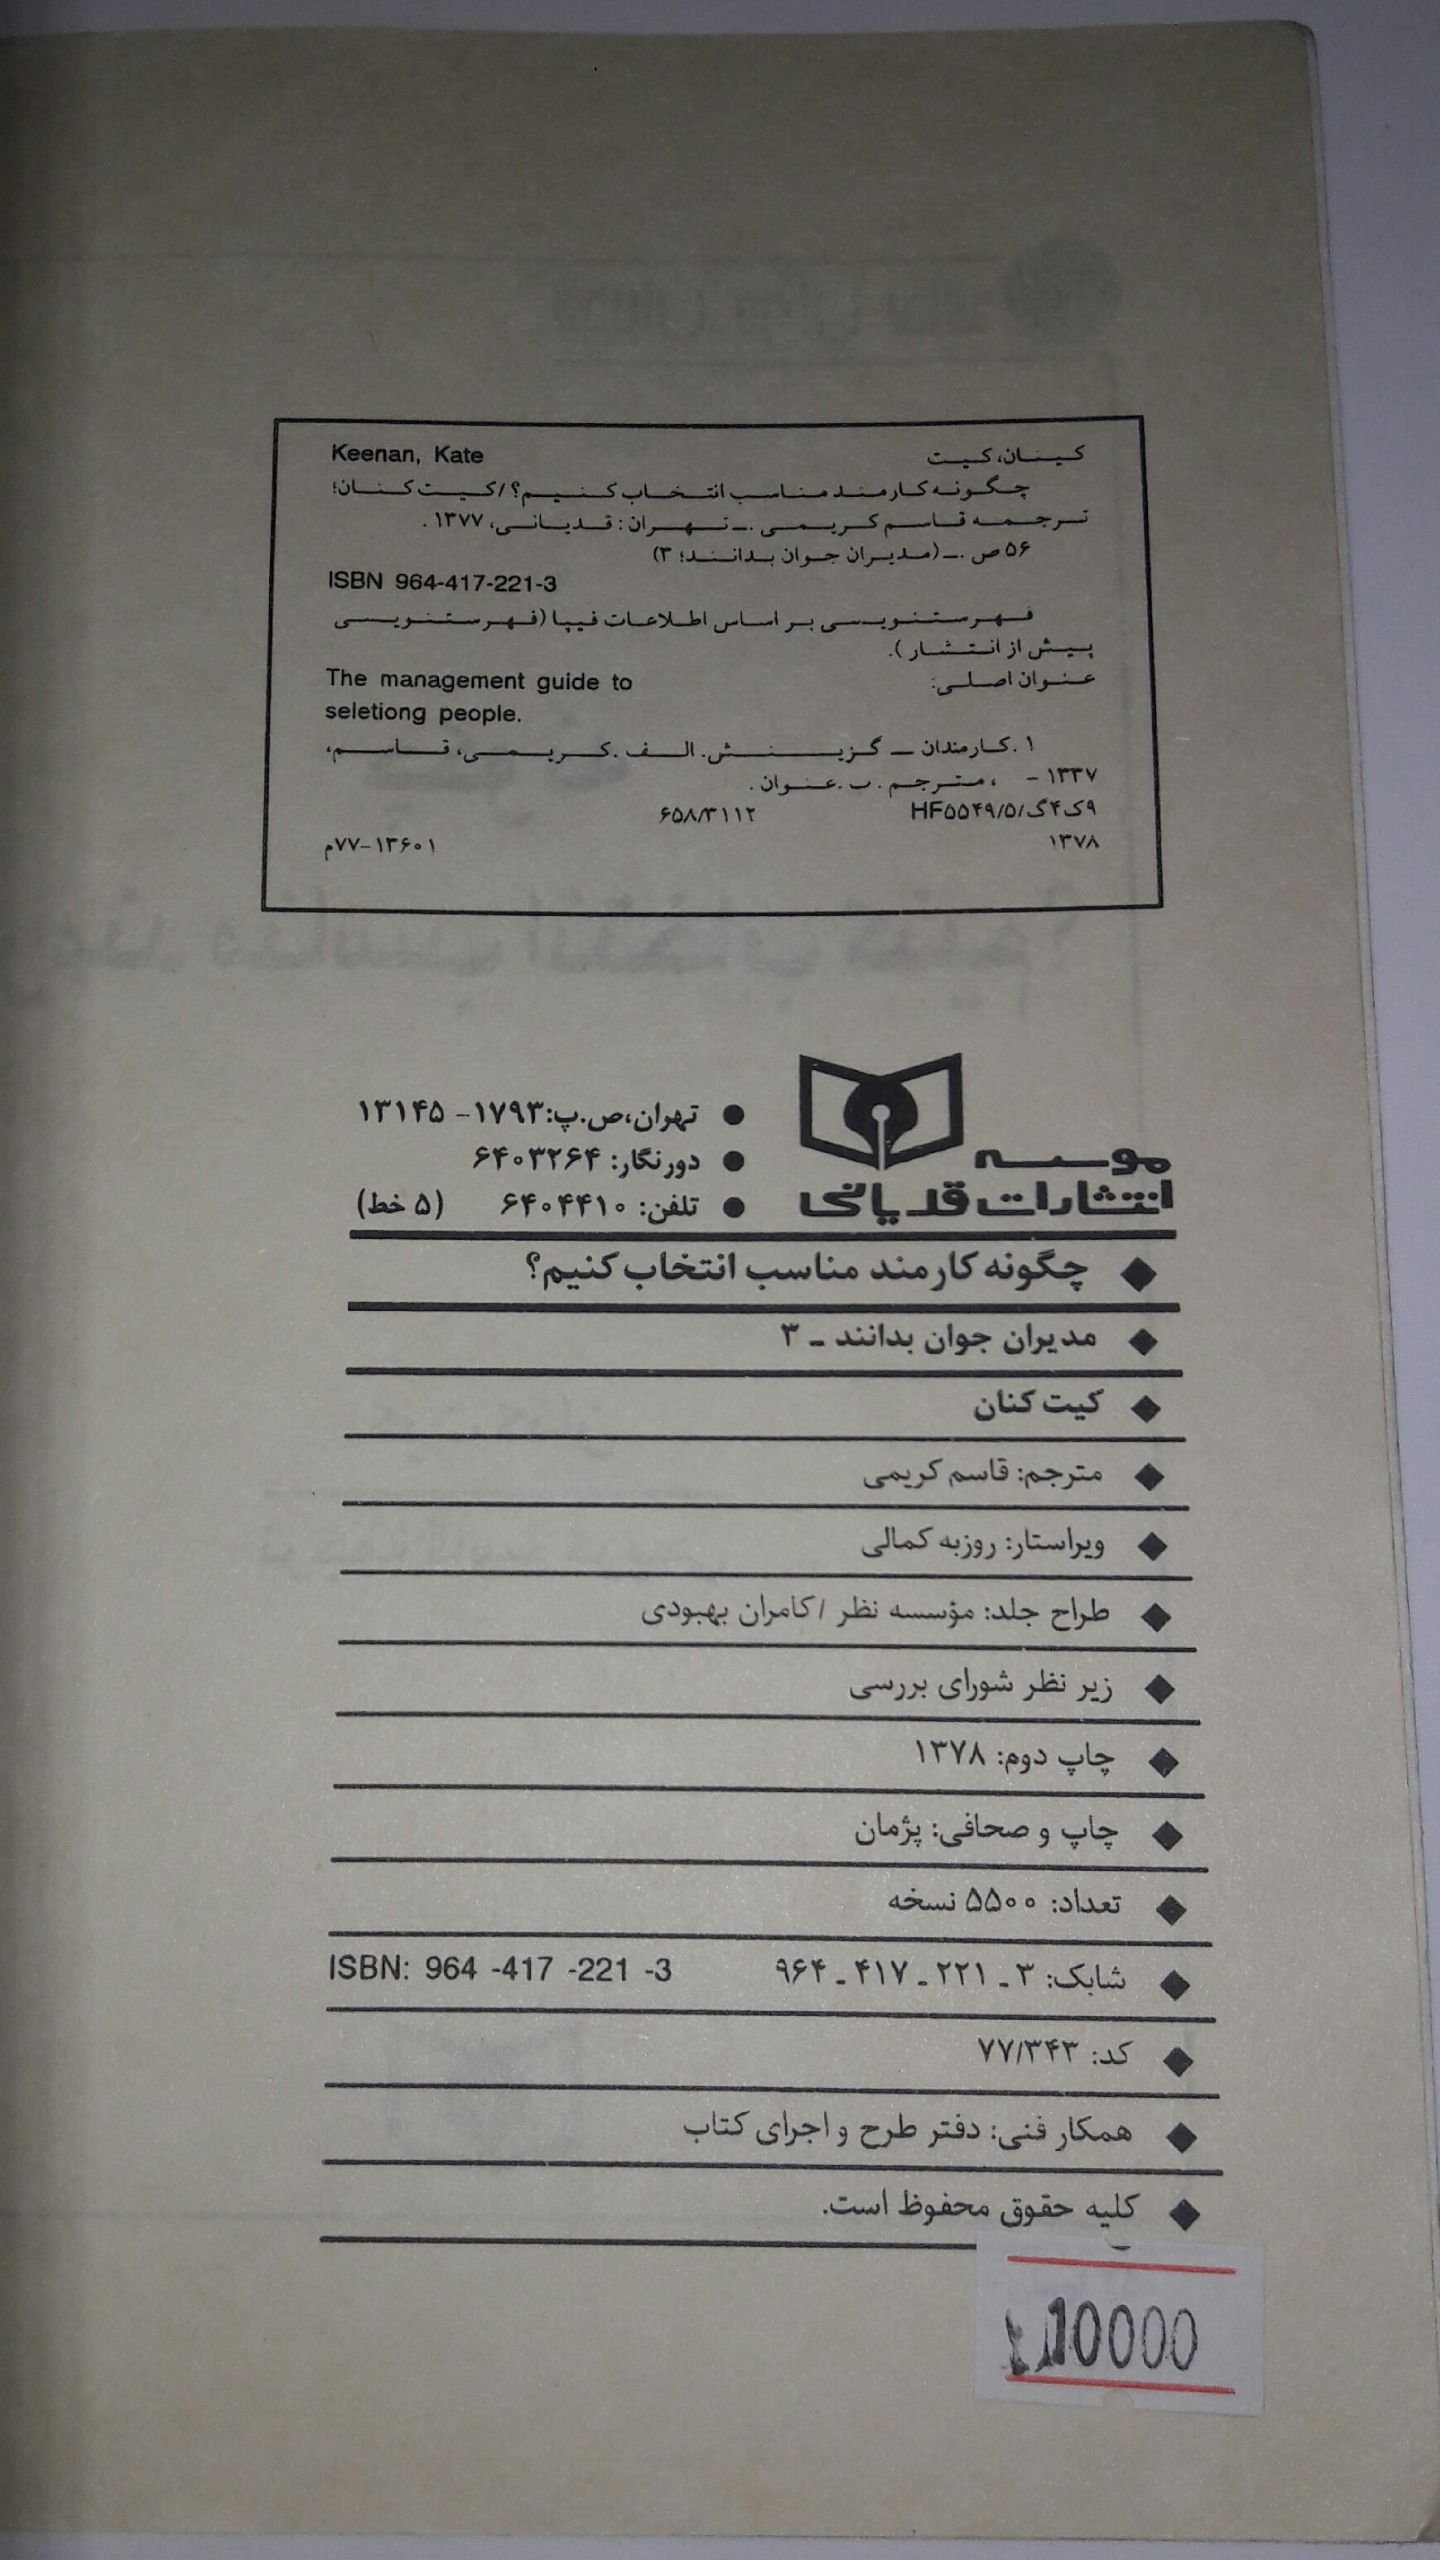 کینان، کیت Keenan, Kate
چگونه کارمند مناسب انتخاب کنیم؟ / کیت کنان؛
ترجمه قاسم کریمی .ـ تهران: قدیانی، ۱۳۷۷.
۵۶ ص .ـ (مدیران جوان بدانند؛ ۳)
ISBN 964-417-221-3
فهرستنویسی بر اساس اطلاعات فیپا (فهرستنویسی
پیش از انتشار).
عنوان اصلی: The management guide to
seletiong people.
۱. کارمندان ــ گزینش. الف. کریمی، قاسم،
۱۳۳۷ - ، مترجم. ب. عنوان.
۹ک۴گ/۵/HF۵۵۴۹ ۶۵۸/۳۱۱۲
۱۳۷۸ م۷۷-۱۳۶۰۱
موسسه
انتشارات قدیانی
● تهران، ص.پ: ۱۷۹۳- ۱۳۱۴۵
● دورنگار: ۶۴۰۳۲۶۴
● تلفن: ۶۴۰۴۴۱۰ (۵ خط)
◆ چگونه کارمند مناسب انتخاب کنیم؟
◆ مدیران جوان بدانند ـ ۳
◆ کیت کنان
◆ مترجم: قاسم کریمی
◆ ویراستار: روزبه کمالی
◆ طراح جلد: مؤسسه نظر / کامران بهبودی
◆ زیر نظر شورای بررسی
◆ چاپ دوم: ۱۳۷۸
◆ چاپ و صحافی: پژمان
◆ تعداد: ۵۵۰۰ نسخه
◆ شابک: ۳ ـ ۲۲۱ ـ ۴۱۷ ـ ۹۶۴ ISBN: 964 -417 -221 -3
◆ کد: ۷۷/۳۴۳
◆ همکار فنی: دفتر طرح و اجرای کتاب
◆ کلیه حقوق محفوظ است.
10000